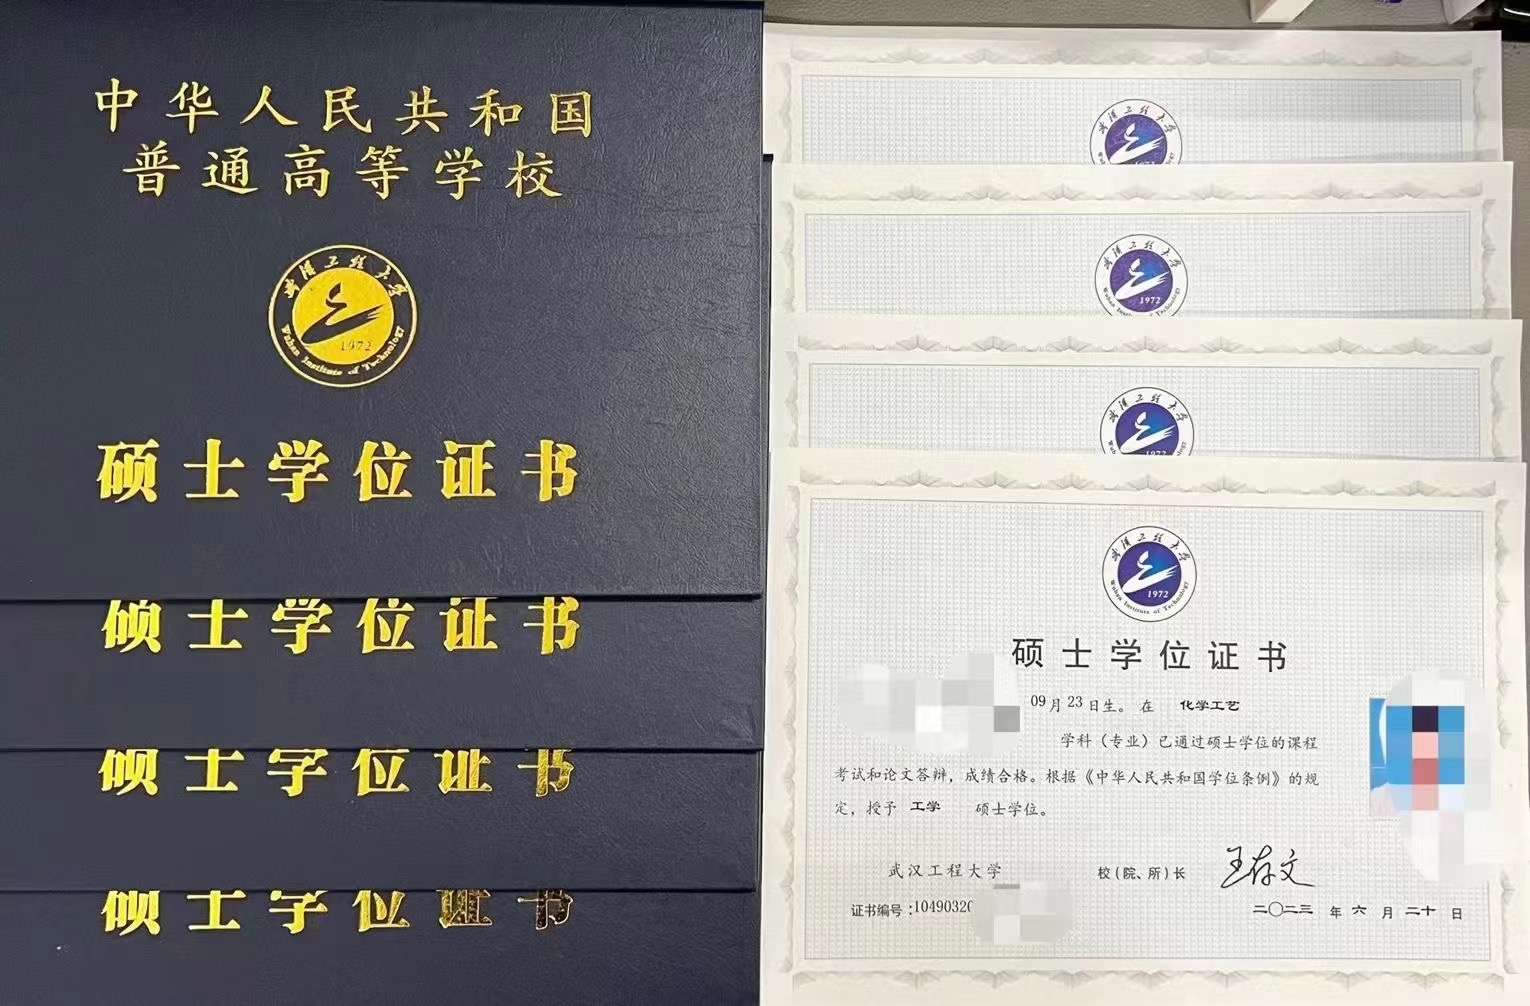 中华人民共和国
普通高等学校
武汉工程大学
1972
Wuhan Institute of Technology
硕士学位证书
硕士学位证书
硕士学位证书
硕士学位证书
武汉工程大学
武汉工程大学
1972
武汉工程大学
1972
武汉工程大学
1972
Wuhan Institute of Technology
硕士学位证书
09月23日生。在 化学工艺
学科（专业）已通过硕士学位的课程
考试和论文答辩，成绩合格。根据《中华人民共和国学位条例》的规
定，授予 工学 硕士学位。
武汉工程大学 校（院、所）长 王存文
证书编号：1049032 二〇二三 年 六 月 二十 日